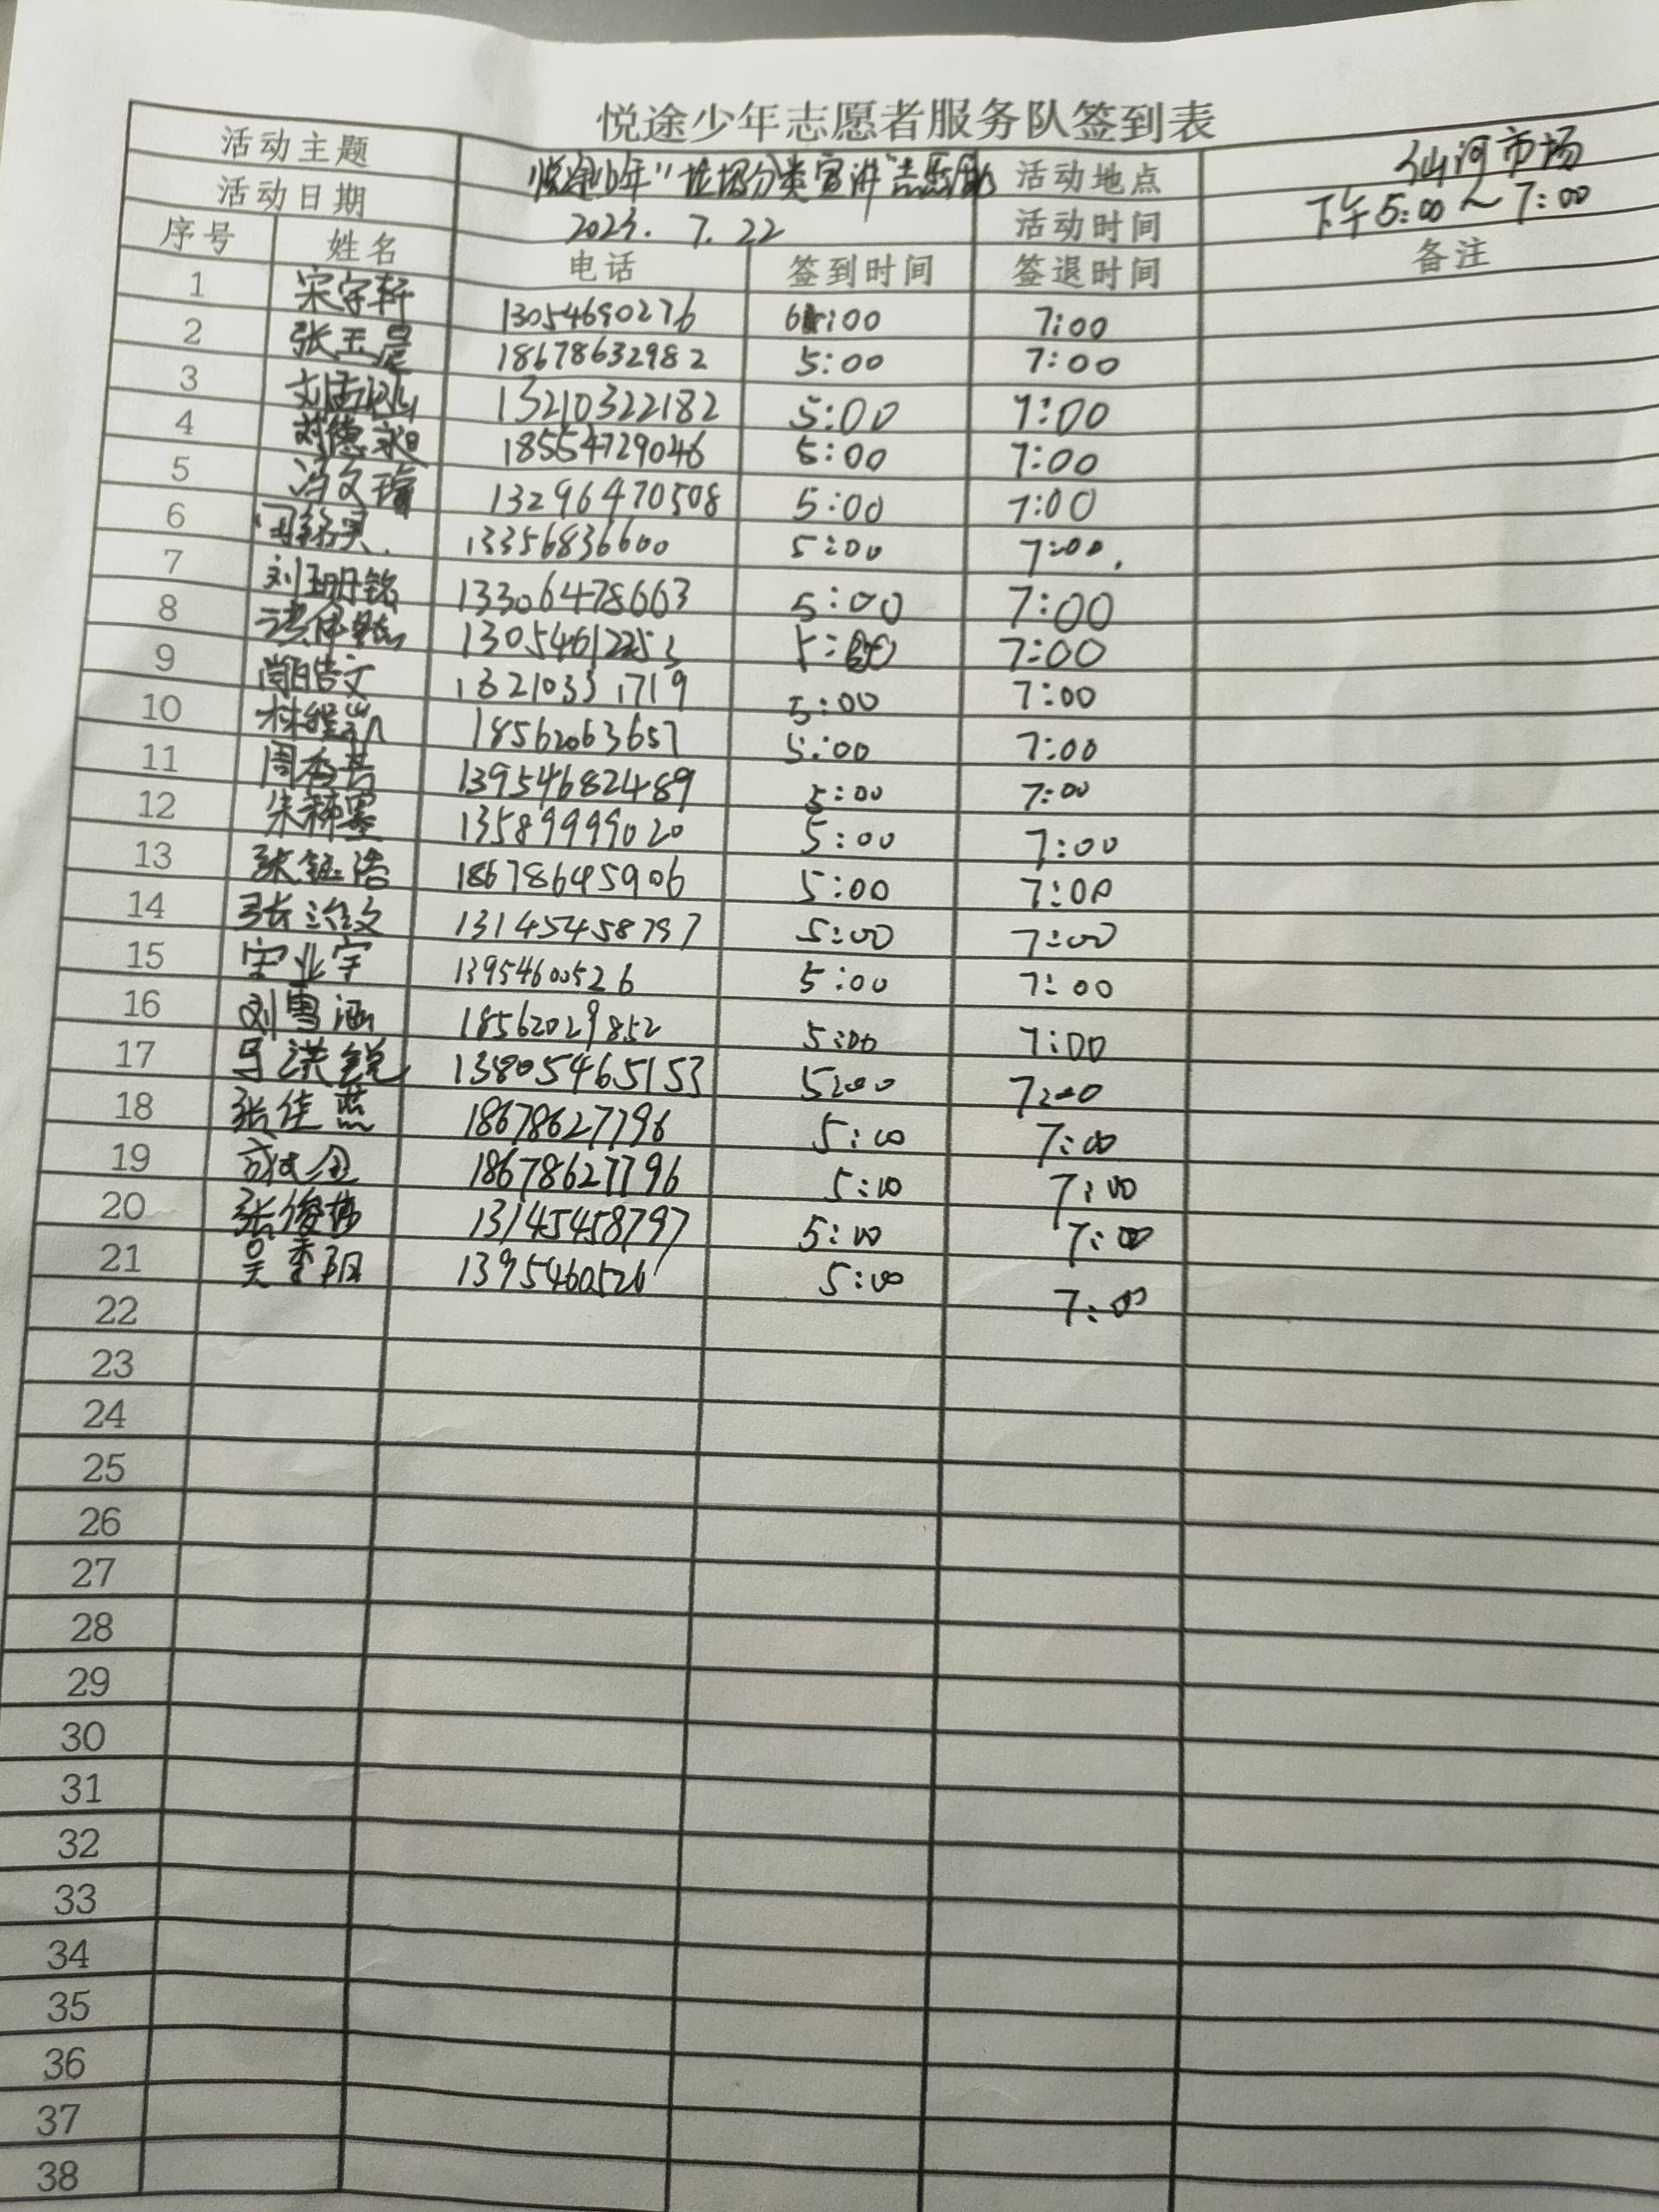 悦途少年志愿者服务队签到表
活动主题 悦途少年"垃圾分类宣讲"志愿活动 活动地点 仙河市场
活动日期 2023. 7. 22 活动时间 下午5:00～7:00
序号 姓名 电话 签到时间 签退时间 备注
1 宋宇轩 13054690276 :00 7:00
2 张玉晨 18678632982 5:00 7:00
3 13210322182 5:00 7:00
4 18554729046 5:00 7:00
5 冯文瑞 13296470508 5:00 7:00
6 13356836600 5:00 7:00
7 刘珊铭 13306478663 5:00 7:00
8 7:00
9 尚皓文 13210331719 5:00 7:00
10 18562063657 5:00 7:00
11 13954682489 5:00 7:00
12 13589999020 5:00 7:00
13 张钰浩 18678645906 5:00 7:00
14 张滋文 13145458797 5:00 7:00
15 宋业宇 13954600526 5:00 7:00
16 刘雪涵 18562029852 5:00 7:00
17 马洪锐 13805465153 5:00 7:00
18 张佳蓝 18678627796 5:00 7:00
19 18678627796 5:00 7:00
20 13145458797 5:00 7:00
21 吴季阳 1395460526 5:00 7:00
22
23
24
25
26
27
28
29
30
31
32
33
34
35
36
37
38